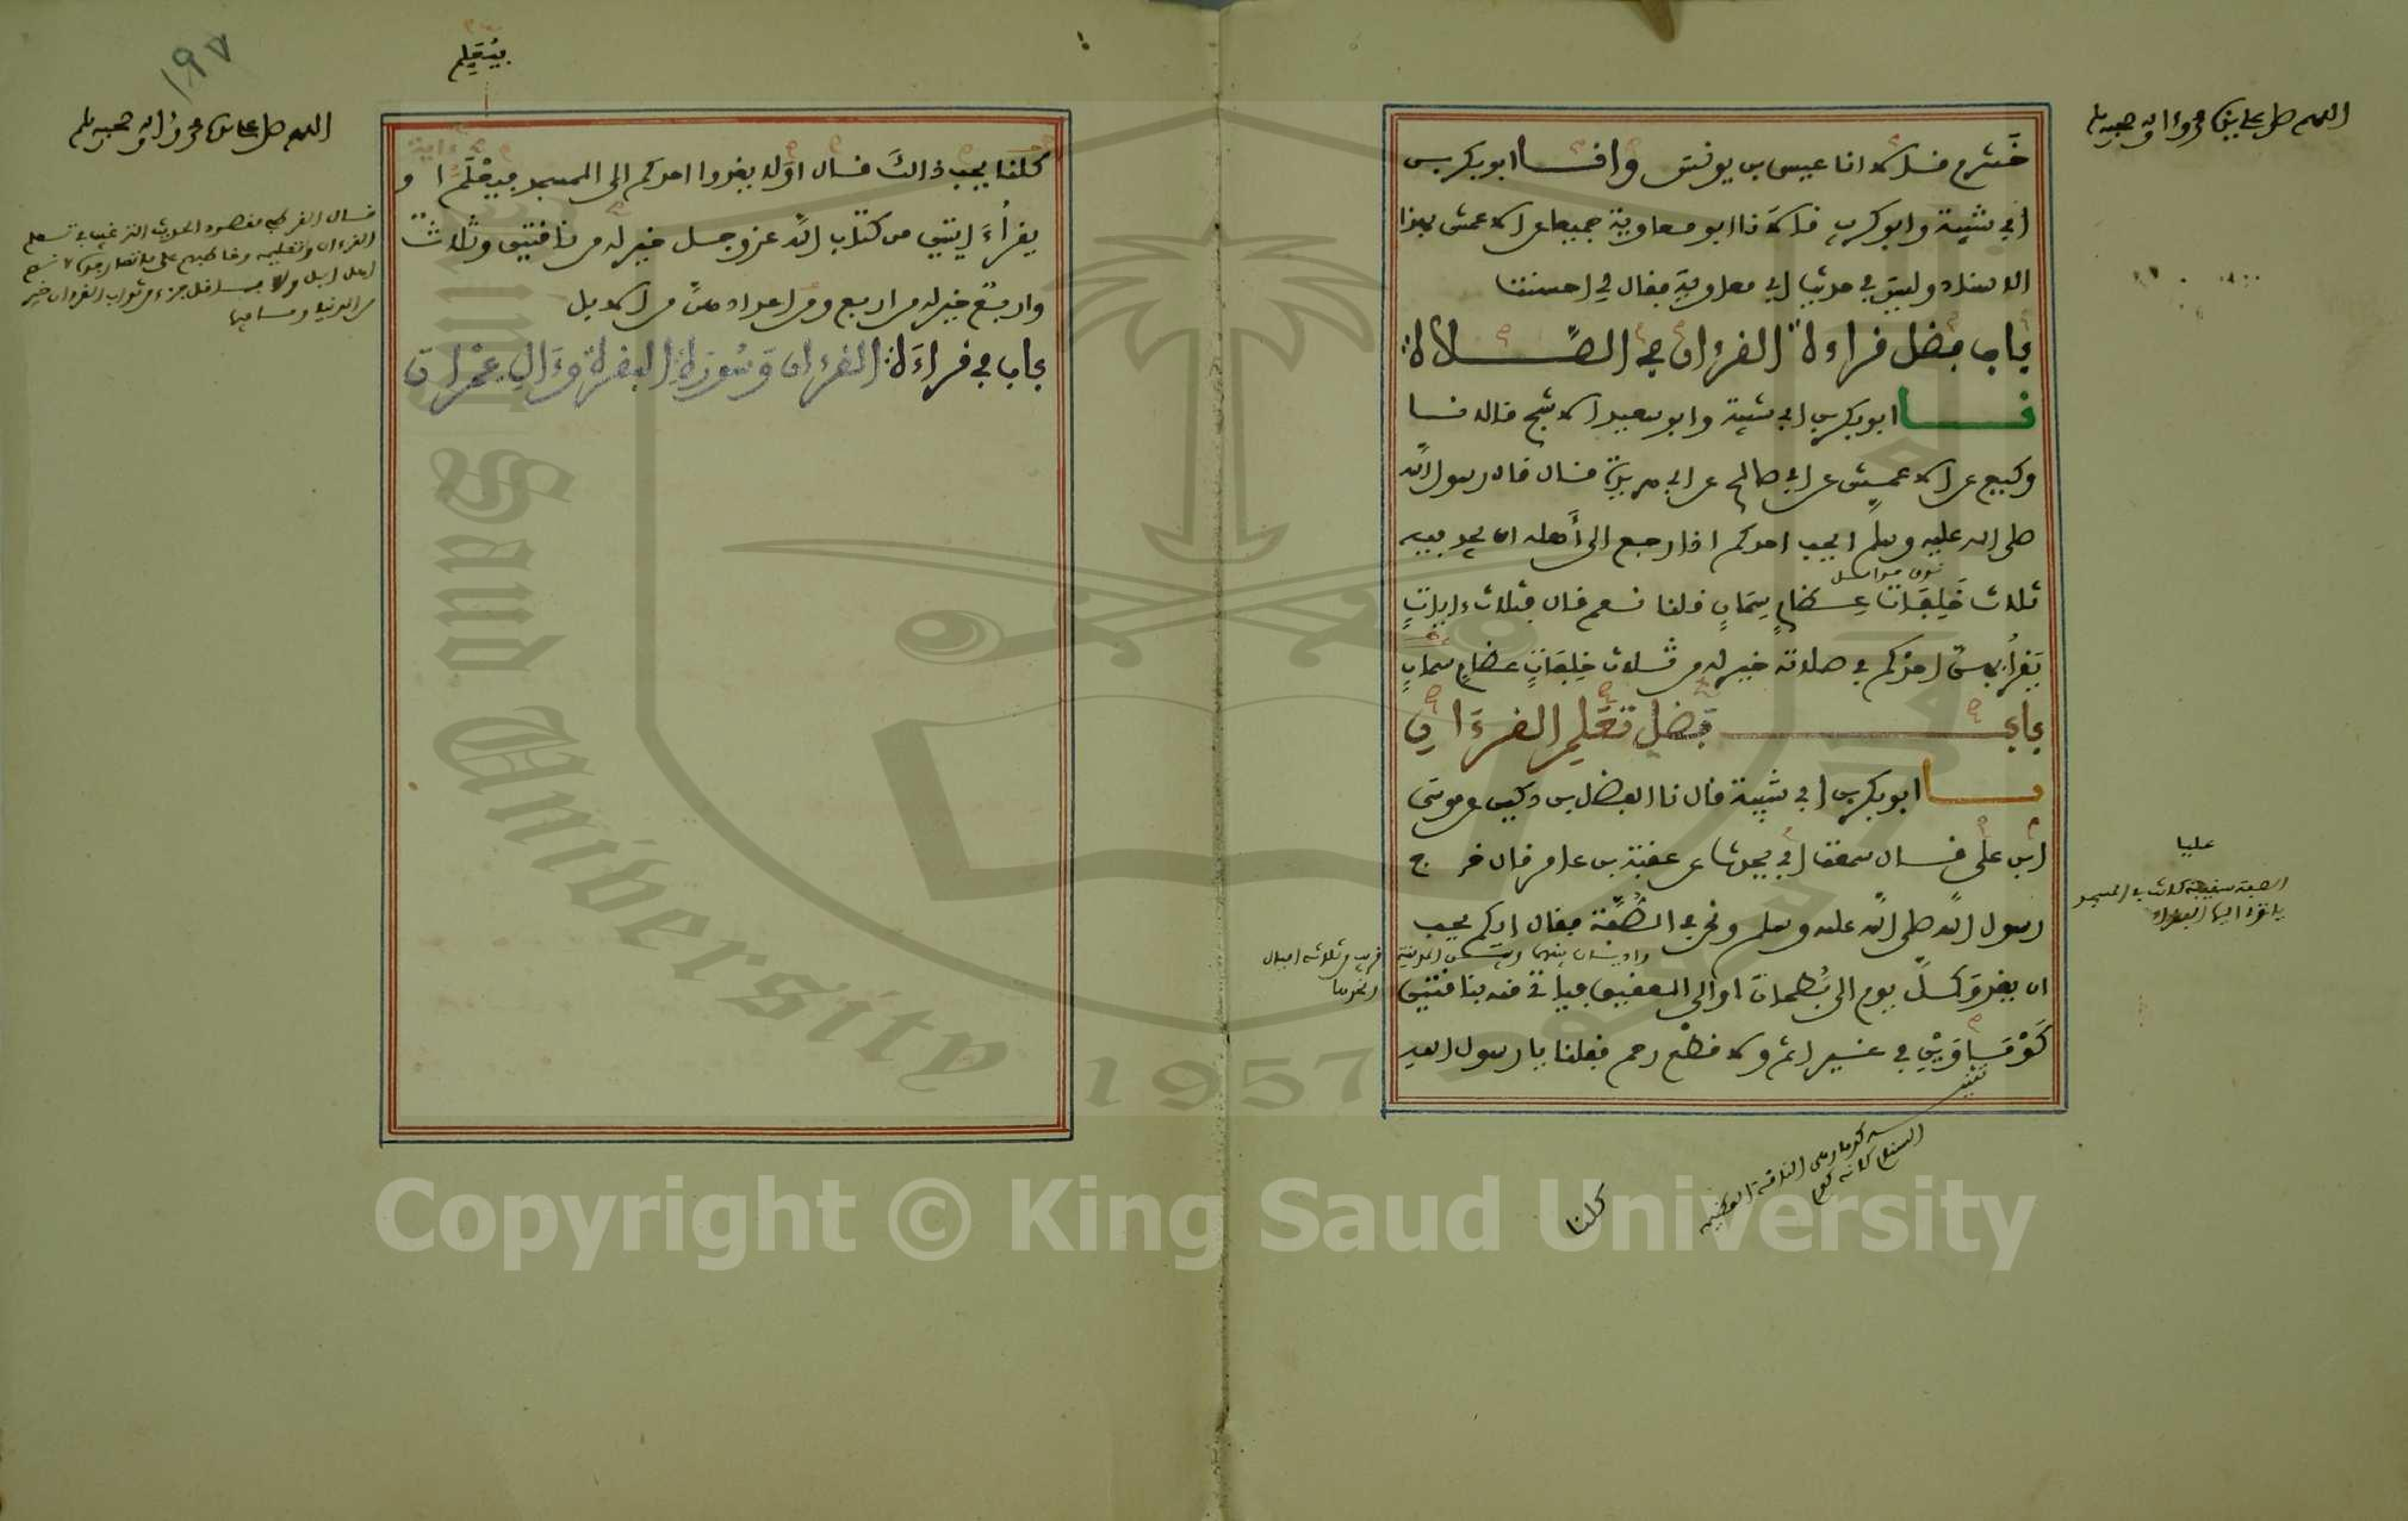 اللهم صل على سيدنا محمد وءاله وصحبه وسلم
خشرم قالا انا عيسى بن يونس وانا ابو بكر بن
ابي شيبة وابو كريب قالا نا ابو معاوية جميعا عن الاعمش بهذا
الاسناد وليس في حديث ابي معاوية فقال لي احسنت
باب فضل قراءة القرءان في الصلاة
نا ابو بكر بن ابي شيبة وابو سعيد الاشج قالا نا
وكيع عن الاعمش عن ابي صالح عن ابي هريرة قال قال رسول الله
صلى الله عليه وسلم ايحب احدكم اذا رجع الى أهله ان يجد فيه
ثلاث خَلِفَات عظام سمان قلنا نعم قال فثلاث ءايات
يقرأ بهن احدكم في صلاته خير له من ثلاث خلفات عظام سمان
باب فضل تعلم القرءان
نا ابو بكر بن ابي شيبة قال نا الفضل بن دكين عن موسى
ابن علي قال سمعت ابي يحدث عن عقبة بن عامر قال خرج
رسول الله صلى الله عليه وسلم ونحن في الصُّفَّة فقال ايكم يحب
ان يغدو كل يوم الى بُطحان او الى العقيق فياتي منه بناقتين
كوماوين في غير اثم ولا قطع رحم فقلنا يا رسول الله
عليا
الصفة سقيفة كانت في المسجد
ياوي اليها الفقراء
قريب من ثلاثة اميال
ونحوها
كلنا
١٩٧
اللهم صل على سيدنا محمد وءاله وصحبه وسلم
فيُعَلِّم
كلنا يحب ذالك قال افلا يغدوا احدكم الى المسجد فيعْلَمُ او
يقرأ ايتين من كتاب الله عز وجل خير له من ناقتين وثلاث
واربع خير له من اربع ومن اعدادهن من الابل
باب في قراءة القرءان وسورة البقرة وءال عمران
قال القرطبي مقصود الحديث الترغيب في تعلم
القرءان وتعليمه وخاطبهم على ما تعارفوه
من الدنيا وما فيها